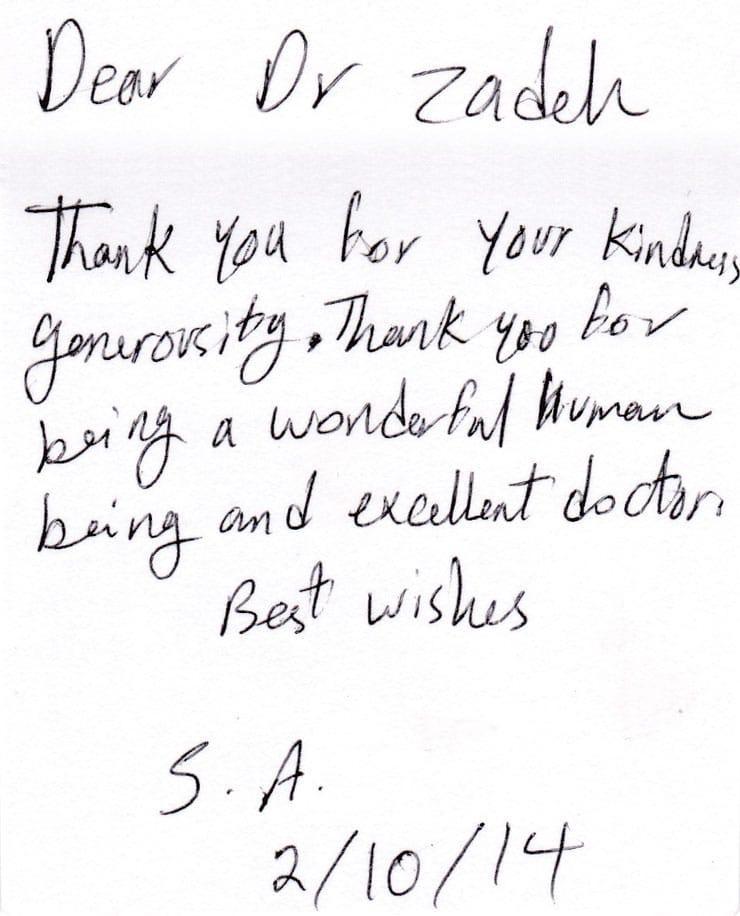 Dear Dr Zadeh
Thank you for your kindness
generousity. Thank you for
being a wonderful human
being and excellent doctor.
Best wishes
S. A.
2/10/14